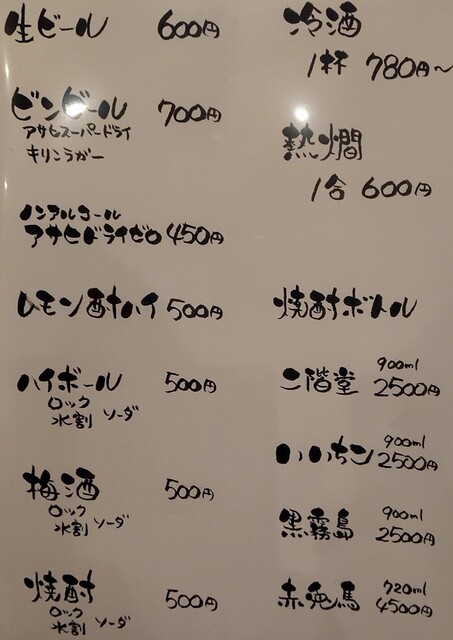 生ビール 600円
ビンビール 700円
アサヒスーパードライ
キリンラガー
ノンアルコール
アサヒドライゼロ 450円
レモン酎ハイ 500円
ハイボール 500円
ロック
水割 ソーダ
梅酒 500円
ロック
水割 ソーダ
焼酎 500円
ロック
水割 ソーダ
冷酒
1杯 780円〜
熱燗
1合 600円
焼酎ボトル
900ml
二階堂 2500円
900ml
いいちこ 2500円
900ml
黒霧島 2500円
720ml
赤兎馬 4500円